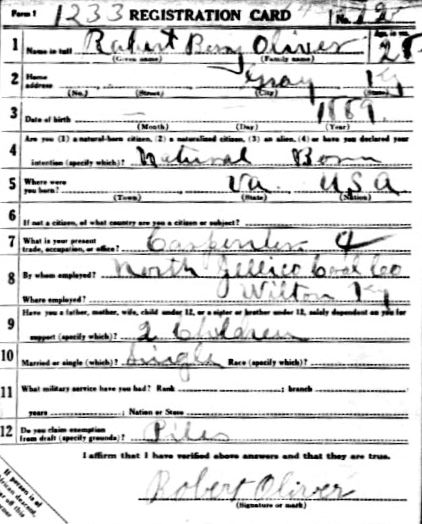 Form 1 1233 REGISTRATION CARD No. 22
1 Name in full Robert Berry Oliver Age, in yrs. 28
(Given name) (Family name)
2 Home address Gray Ky
(No.) (Street) (City) (State)
3 Date of birth — — 1889
(Month) (Day) (Year)
4 Are you (1) a natural-born citizen, (2) a naturalized citizen, (3) an alien, (4) or have you declared your
intention (specify which)? Natural Born
5 Where were you born? Va. USA
(Town) (State) (Nation)
6 If not a citizen, of what country are you a citizen or subject?
7 What is your present trade, occupation, or office? Carpenter 4
8 By whom employed? North Jellico Coal Co
Where employed? Wilton Ky
9 Have you a father, mother, wife, child under 12, or a sister or brother under 12, solely dependent on you for
support (specify which)? 2 Children
10 Married or single (which)? Single Race (specify which)?
11 What military service have you had? Rank ; branch
years ; Nation or State
12 Do you claim exemption from draft (specify grounds)? Piles
I affirm that I have verified above answers and that they are true.
Robert Oliver
(Signature or mark)
If person is of
African descent,
off this